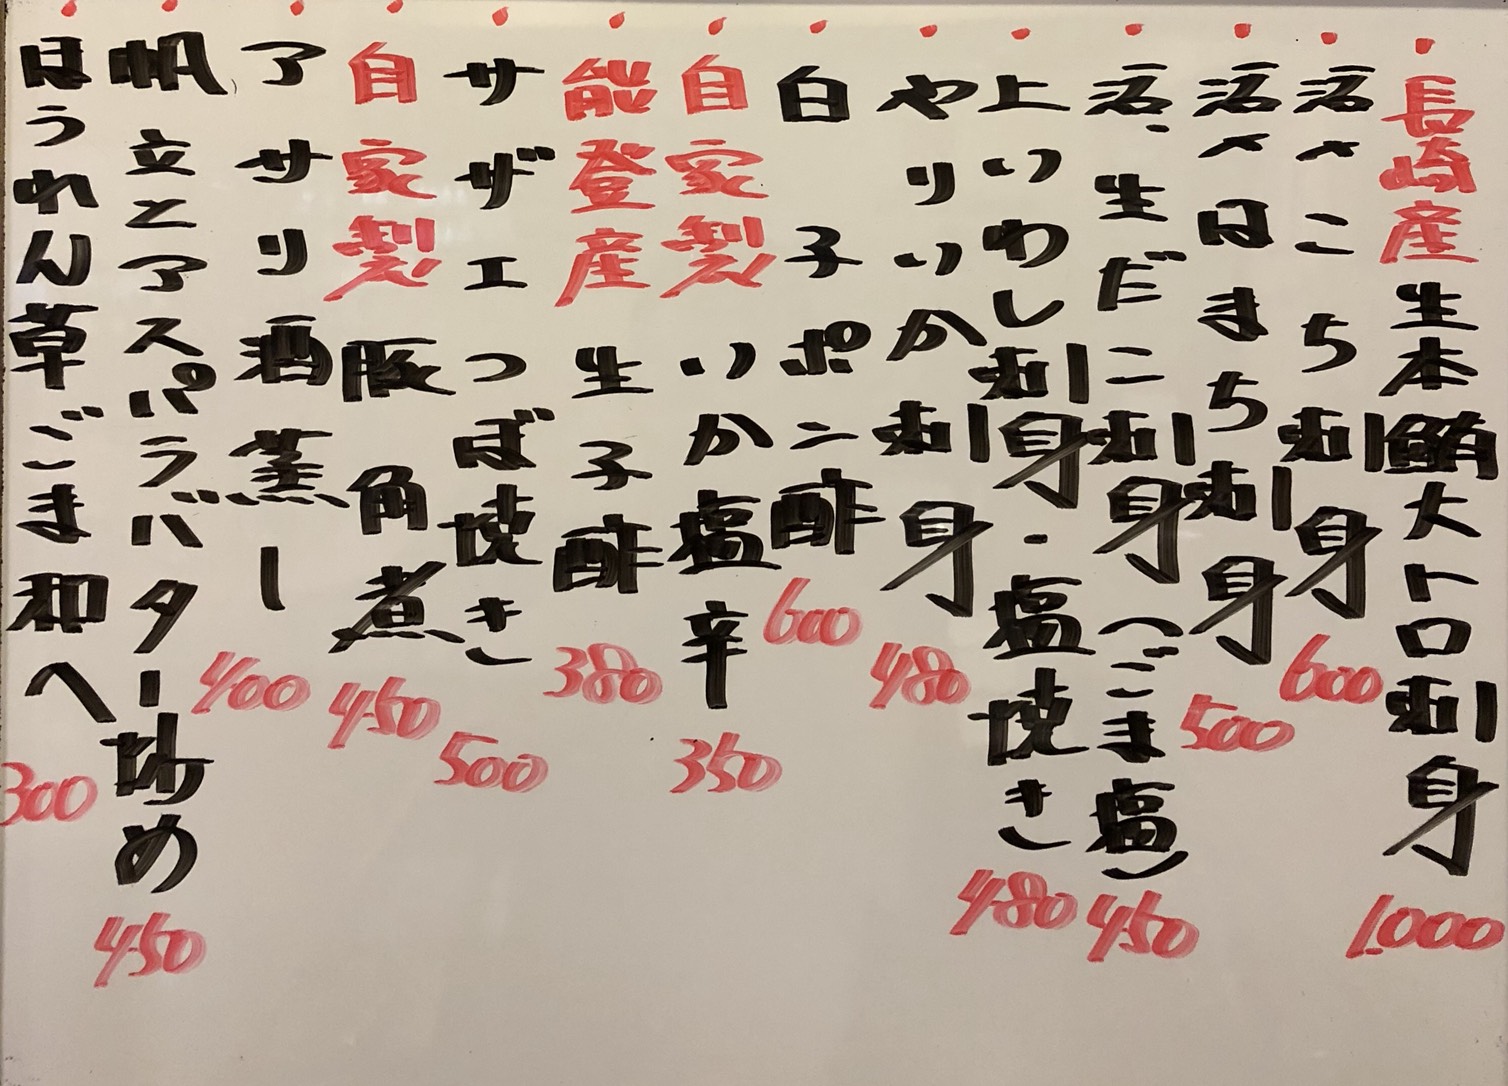 長崎産生本鮪大トロ刺身 1.000
活〆こち刺身 600
活〆はまち刺身 500
活、生だこ刺身(ごま塩) 450
上いわし刺身・塩焼き 480
やりいか刺身 480
白子ポン酢 600
自家製いか塩辛 350
能登産生子酢 380
サザエつぼ焼き 500
自家製豚角煮 450
アサリ酒蒸し 400
帆立とアスパラバター炒め 450
ほうれん草ごま和へ 300